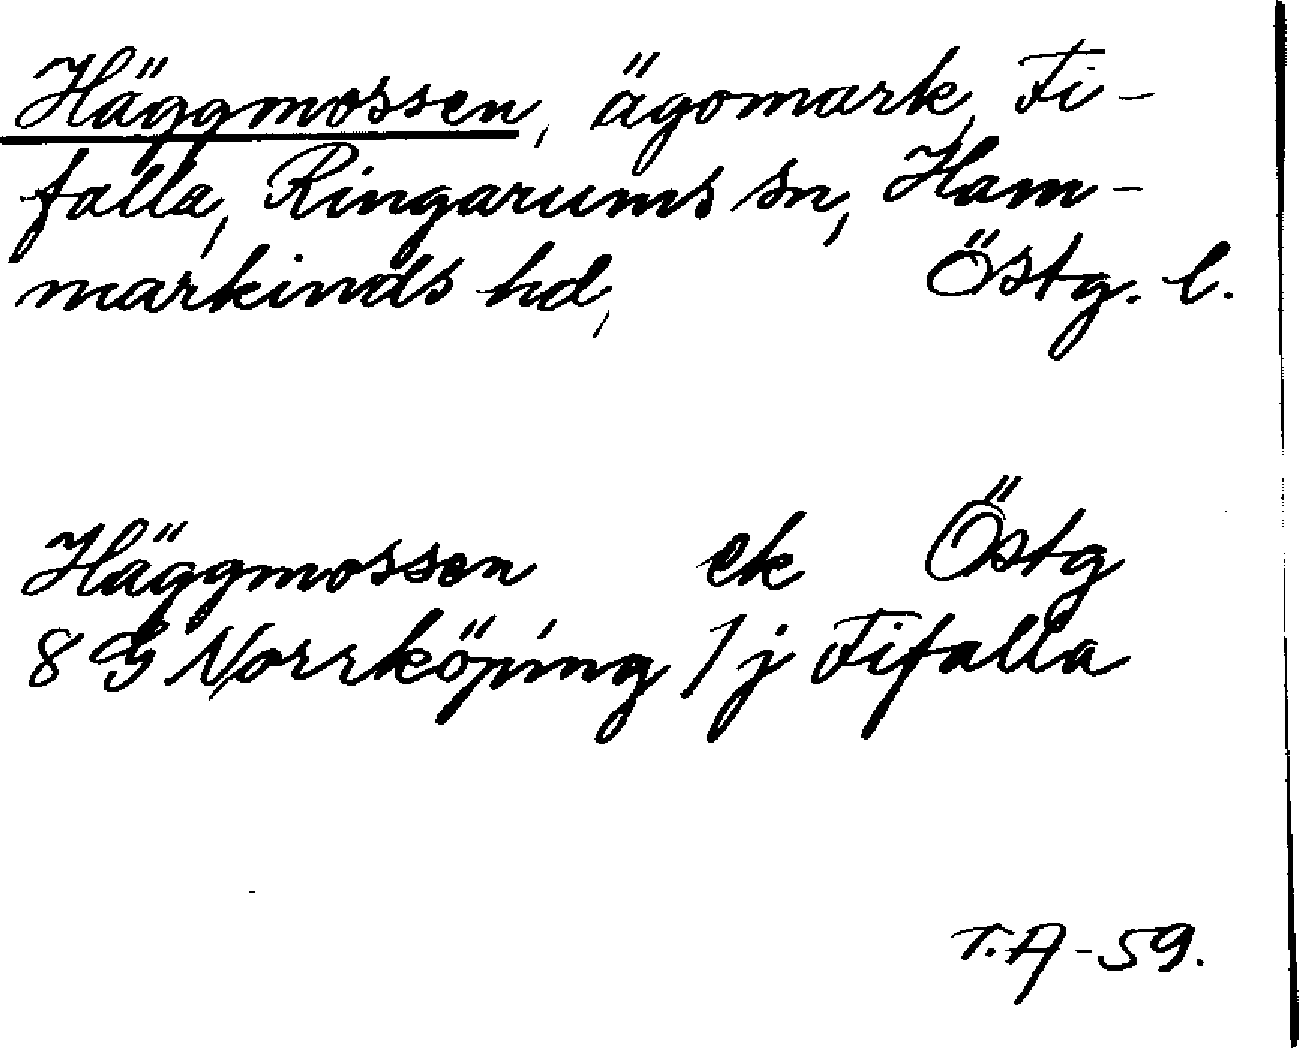 Häggmossen, ägomark, Fi-
falla, Ringarums sn, Ham-
markinds hd, Östg. l.
Häggmossen ek Östg
8 G Norrköping 1 j Fifalla
T.A-59.